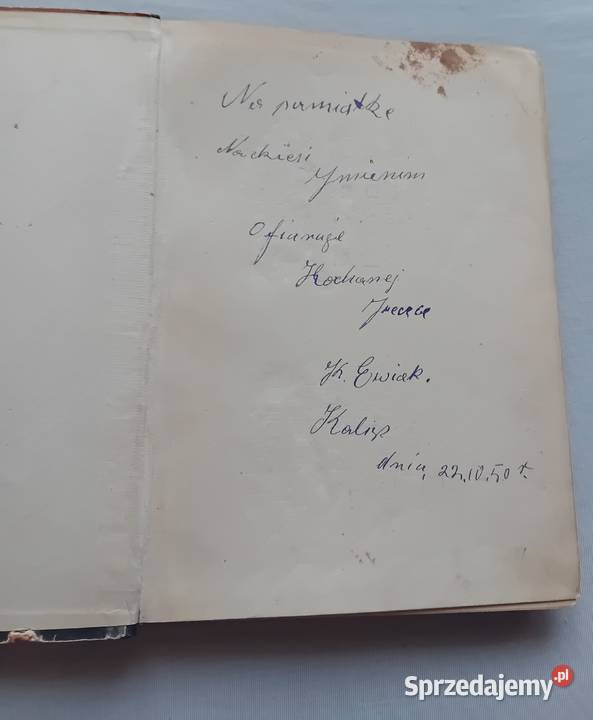 Na pamiatkę
Na dzień
Ymienim
Ofiaruję
Kochanej
K. Ewiak.
Kalisz
dnia, 22.10.50 r.
Sprzedajemy.pl